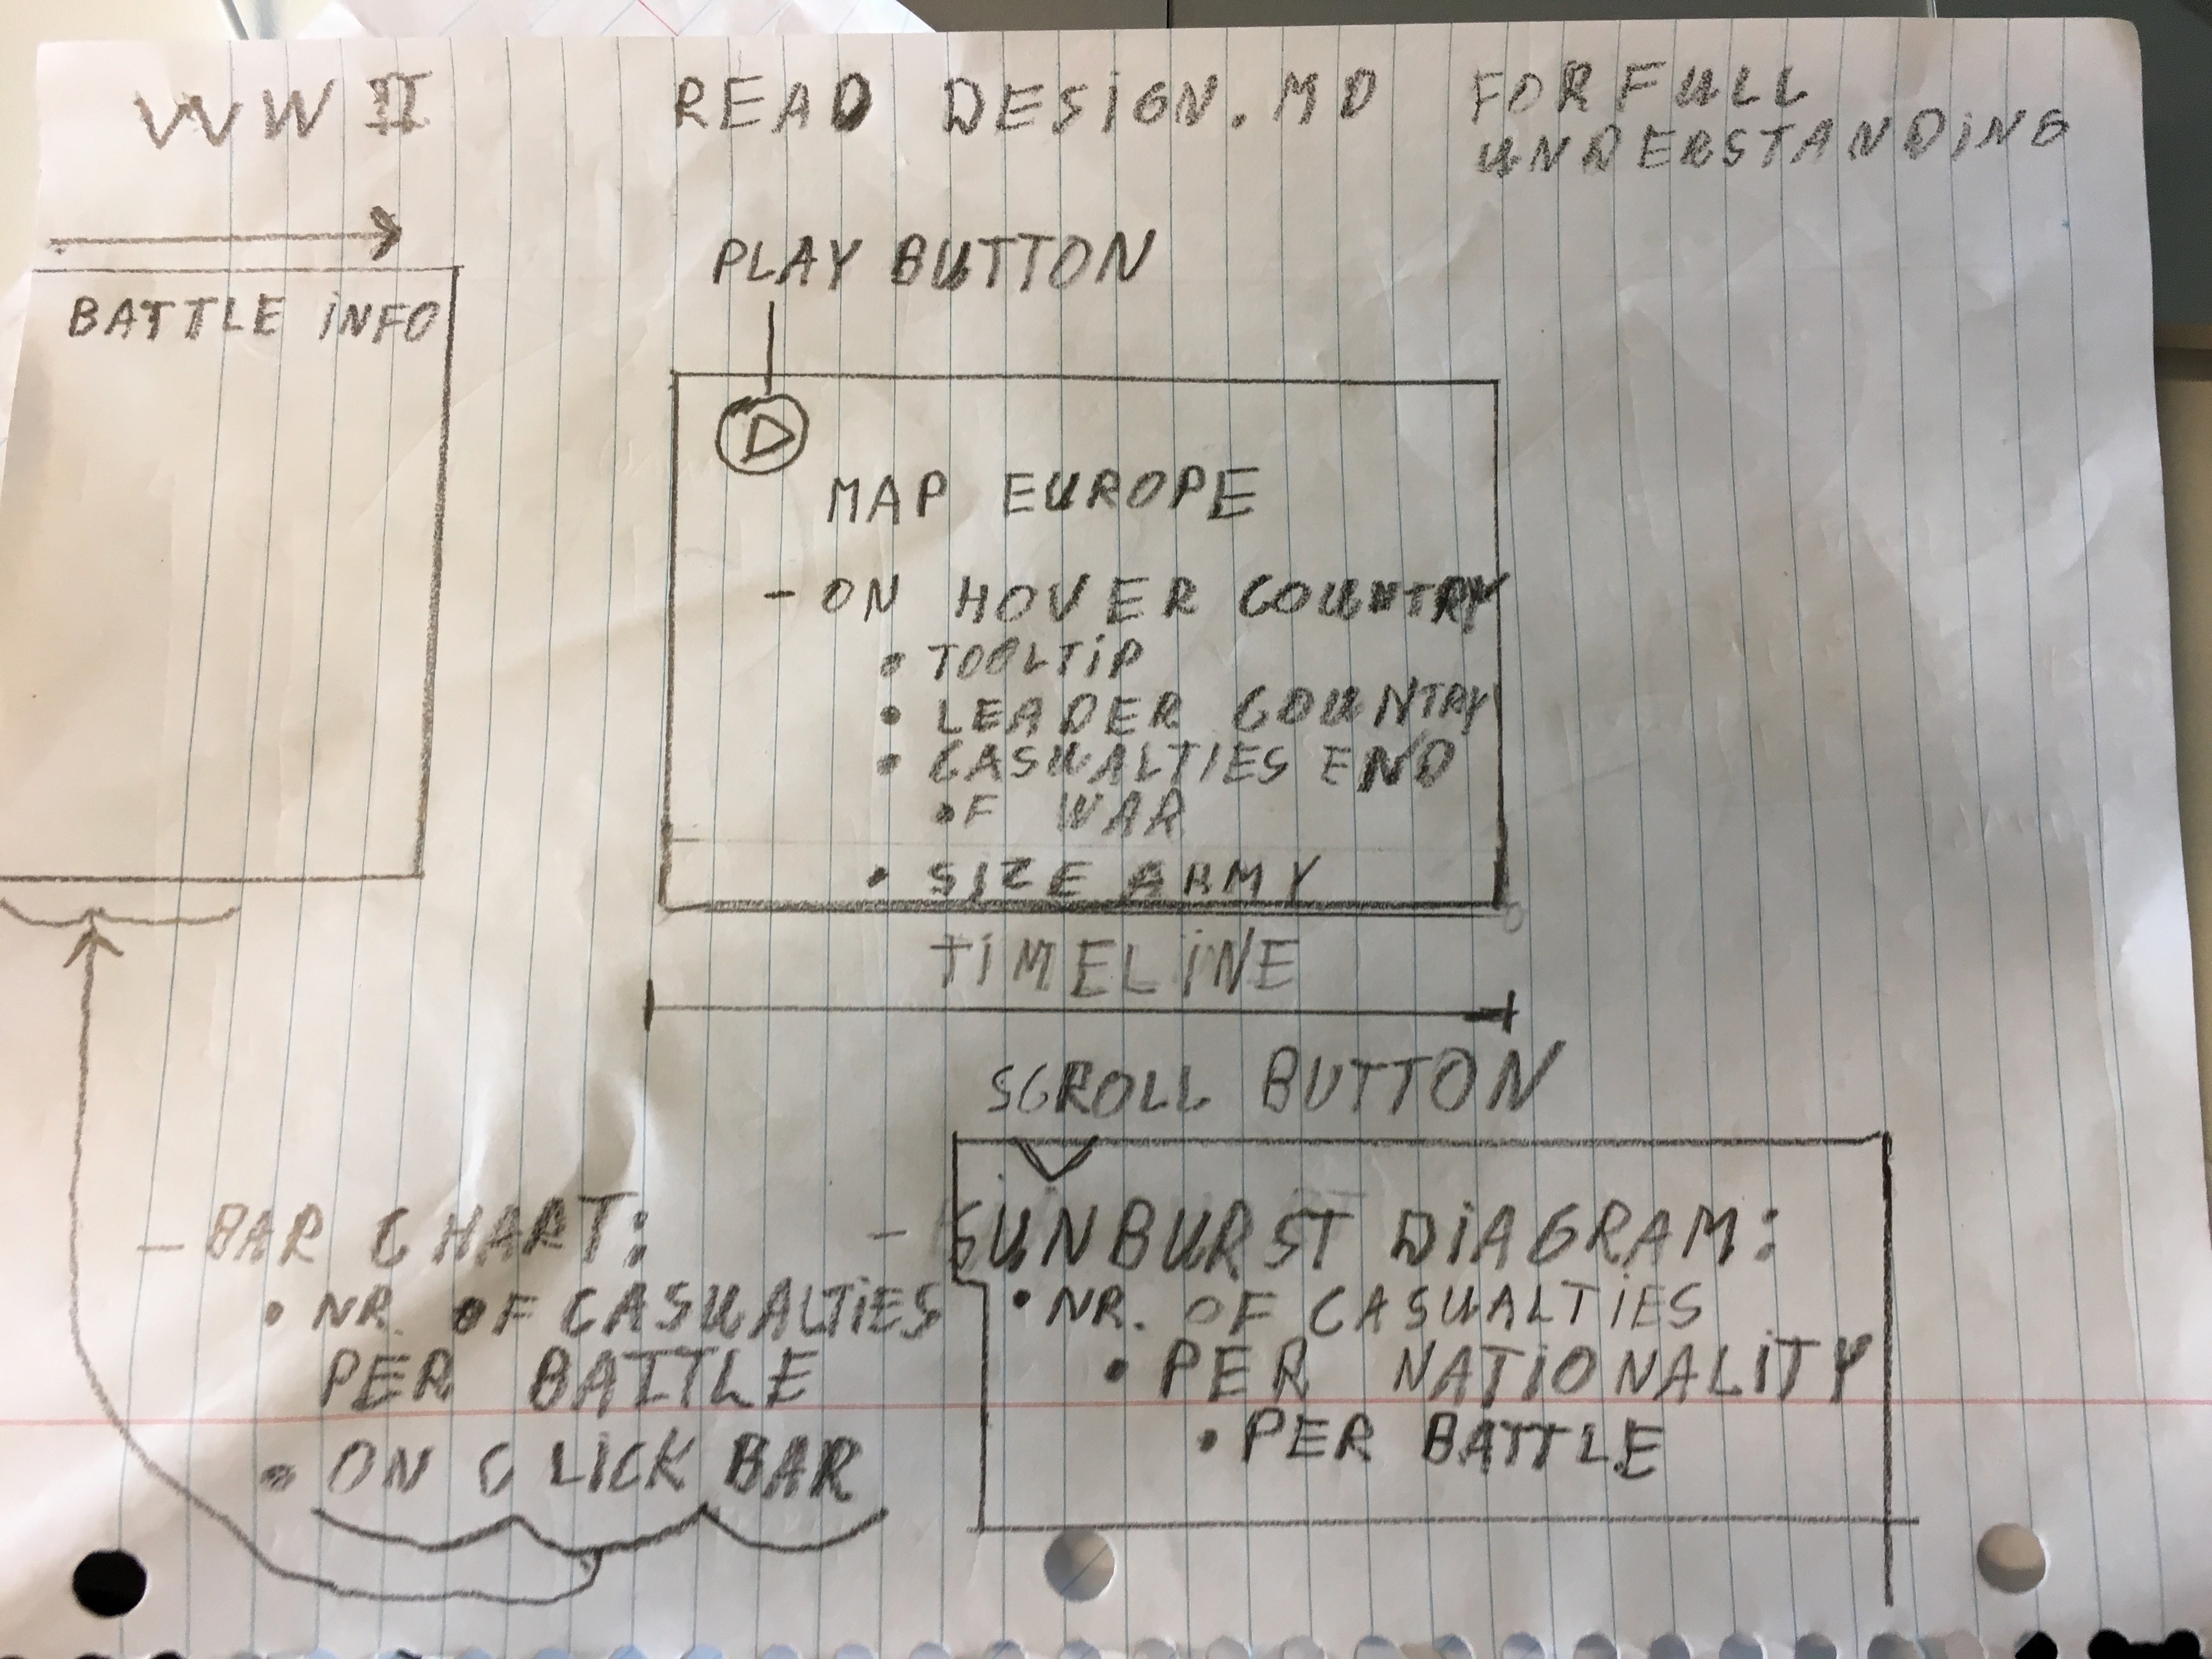 WW II
READ DESIGN.MD FOR FULL
UNDERSTANDING
PLAY BUTTON
BATTLE INFO
MAP EUROPE
- ON HOVER COUNTRY
• TOOLTIP
• LEADER COUNTRY
• CASUALTIES END
OF WAR
• SIZE ARMY
TIMELINE
SCROLL BUTTON
- BAR CHART:
• NR. OF CASUALTIES
PER BATTLE
• ON CLICK BAR
- SUNBURST DIAGRAM:
• NR. OF CASUALTIES
• PER NATIONALITY
• PER BATTLE